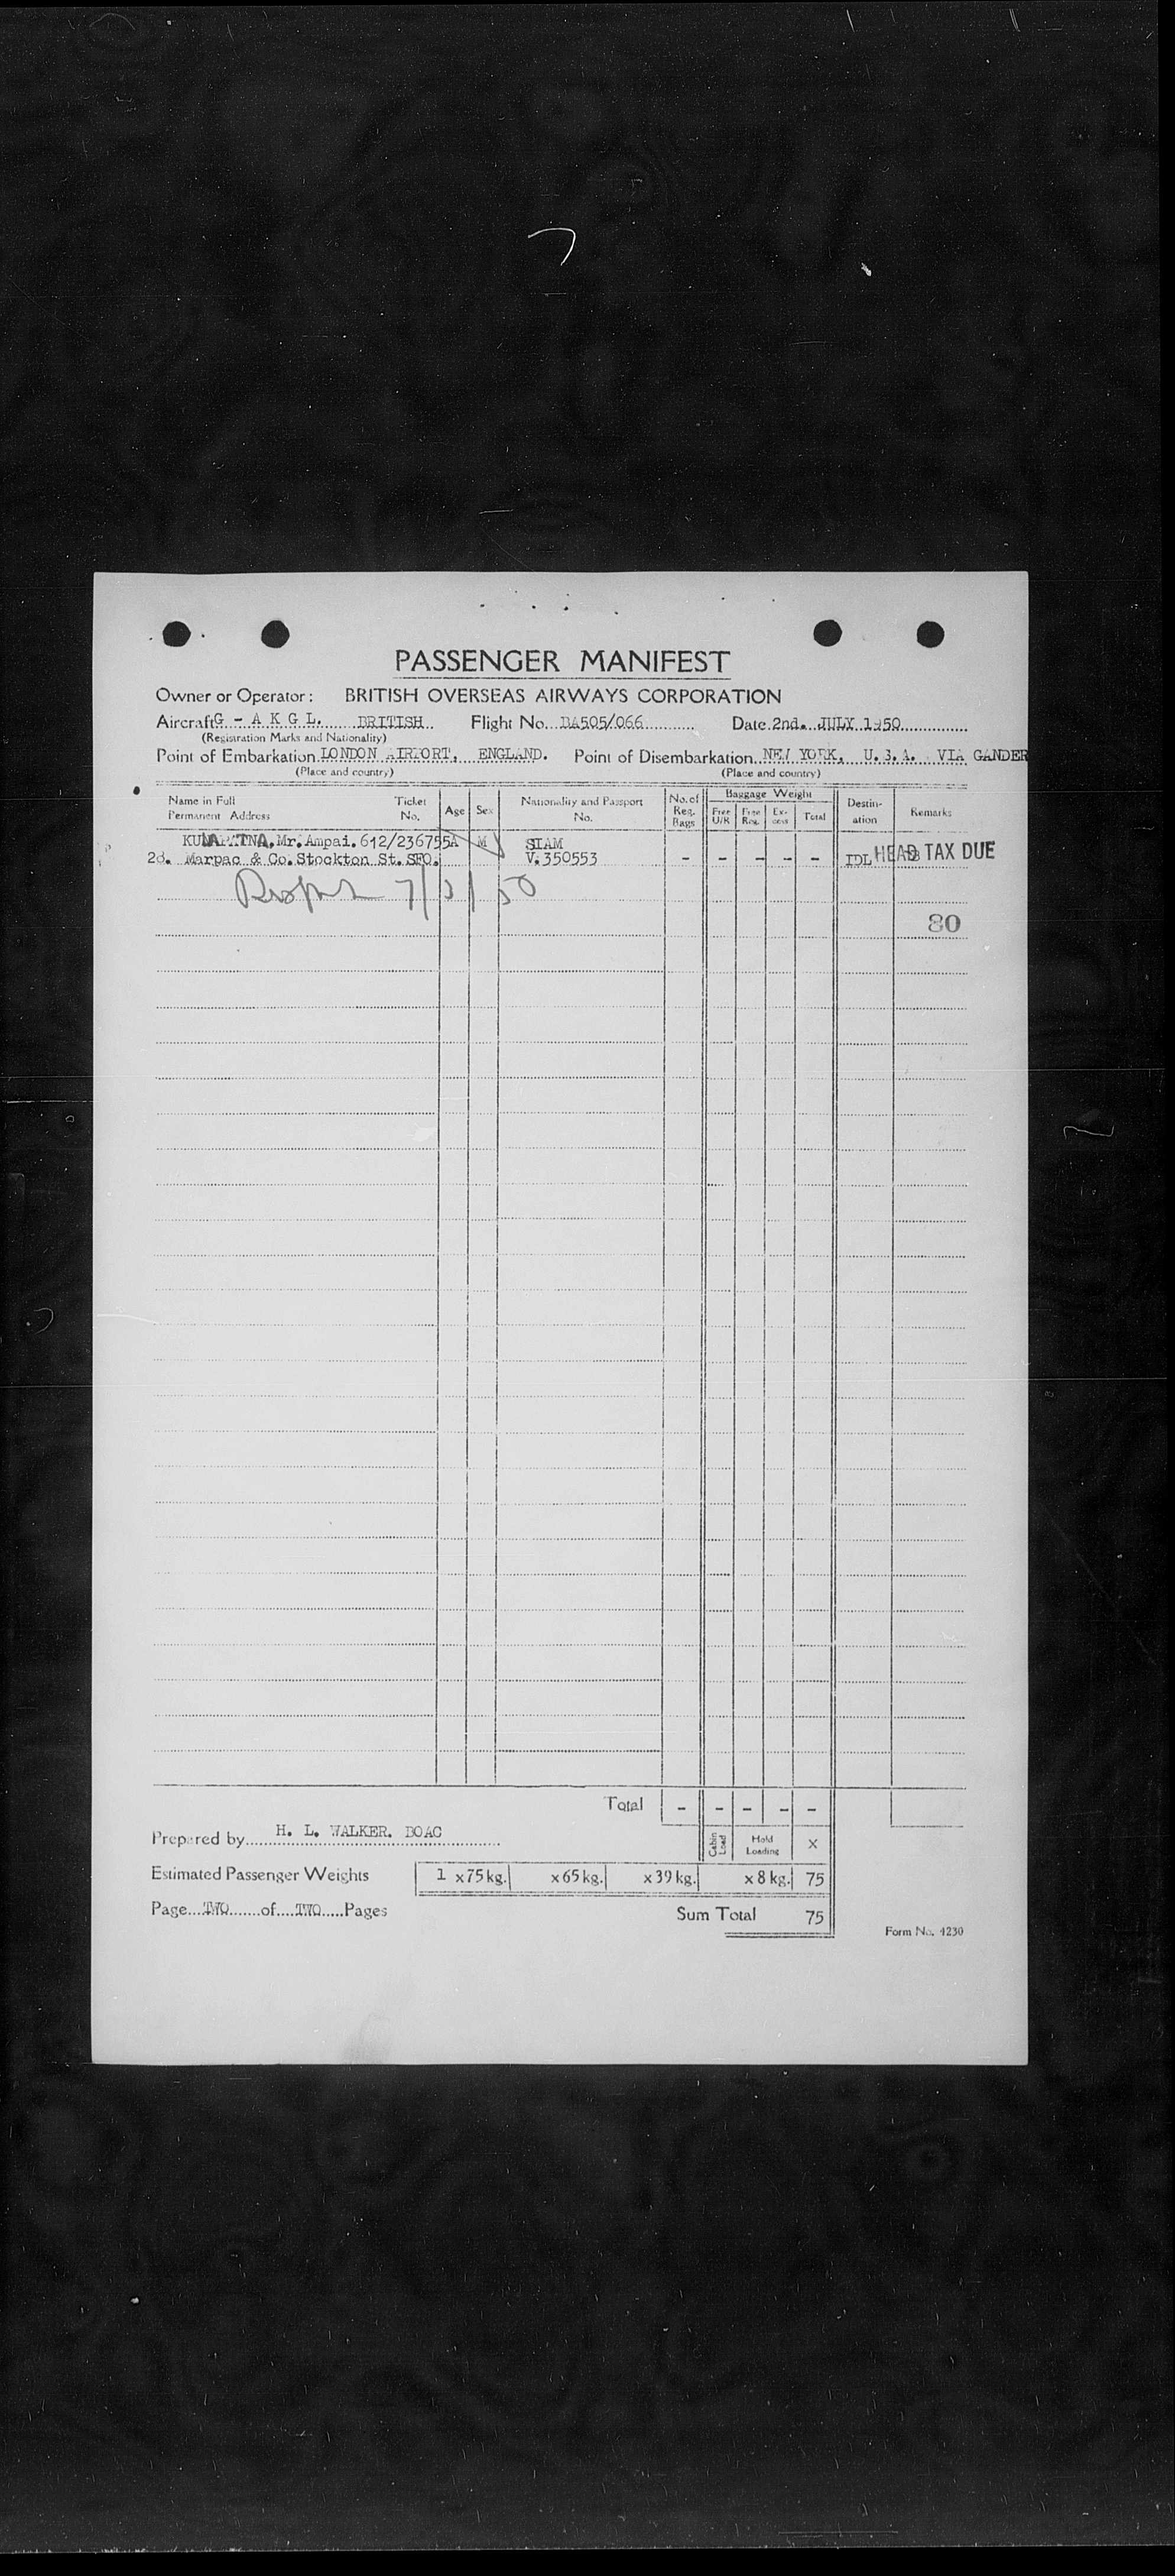 PASSENGER MANIFEST
Owner or Operator: BRITISH OVERSEAS AIRWAYS CORPORATION
Aircraft G - A K G L. BRITISH Flight No. BA505/066 Date. 2nd. JULY 1950
(Registration Marks and Nationality)
Point of Embarkation LONDON AIRPORT, ENGLAND. Point of Disembarkation NEW YORK, U.S.A. VIA GANDER
(Place and country) (Place and country)
Name in Full Ticket Age Sex Nationality and Passport No. of Baggage Weight Destin- Remarks
Permanent Address No. No. Reg. Bags Free U/R Free Reg. Ex-cess Total ation
Mr. Ampai. 612/236755A M SIAM
28. Marpac & Co. Stockton St. SFO. V.350553 - - - - - IDL HEAD TAX DUE
7/3/50
80
Total - - - - -
Prepared by H. L. WALKER. BOAC Cabin Load Hold Loading X
Estimated Passenger Weights 1 x75kg. x65kg. x39kg. x8kg. 75
Page TWO of TWO Pages Sum Total 75
Form No. 4230